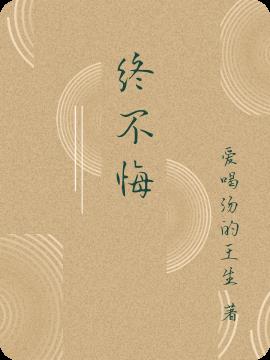 终不悔
爱喝汤的王生 著